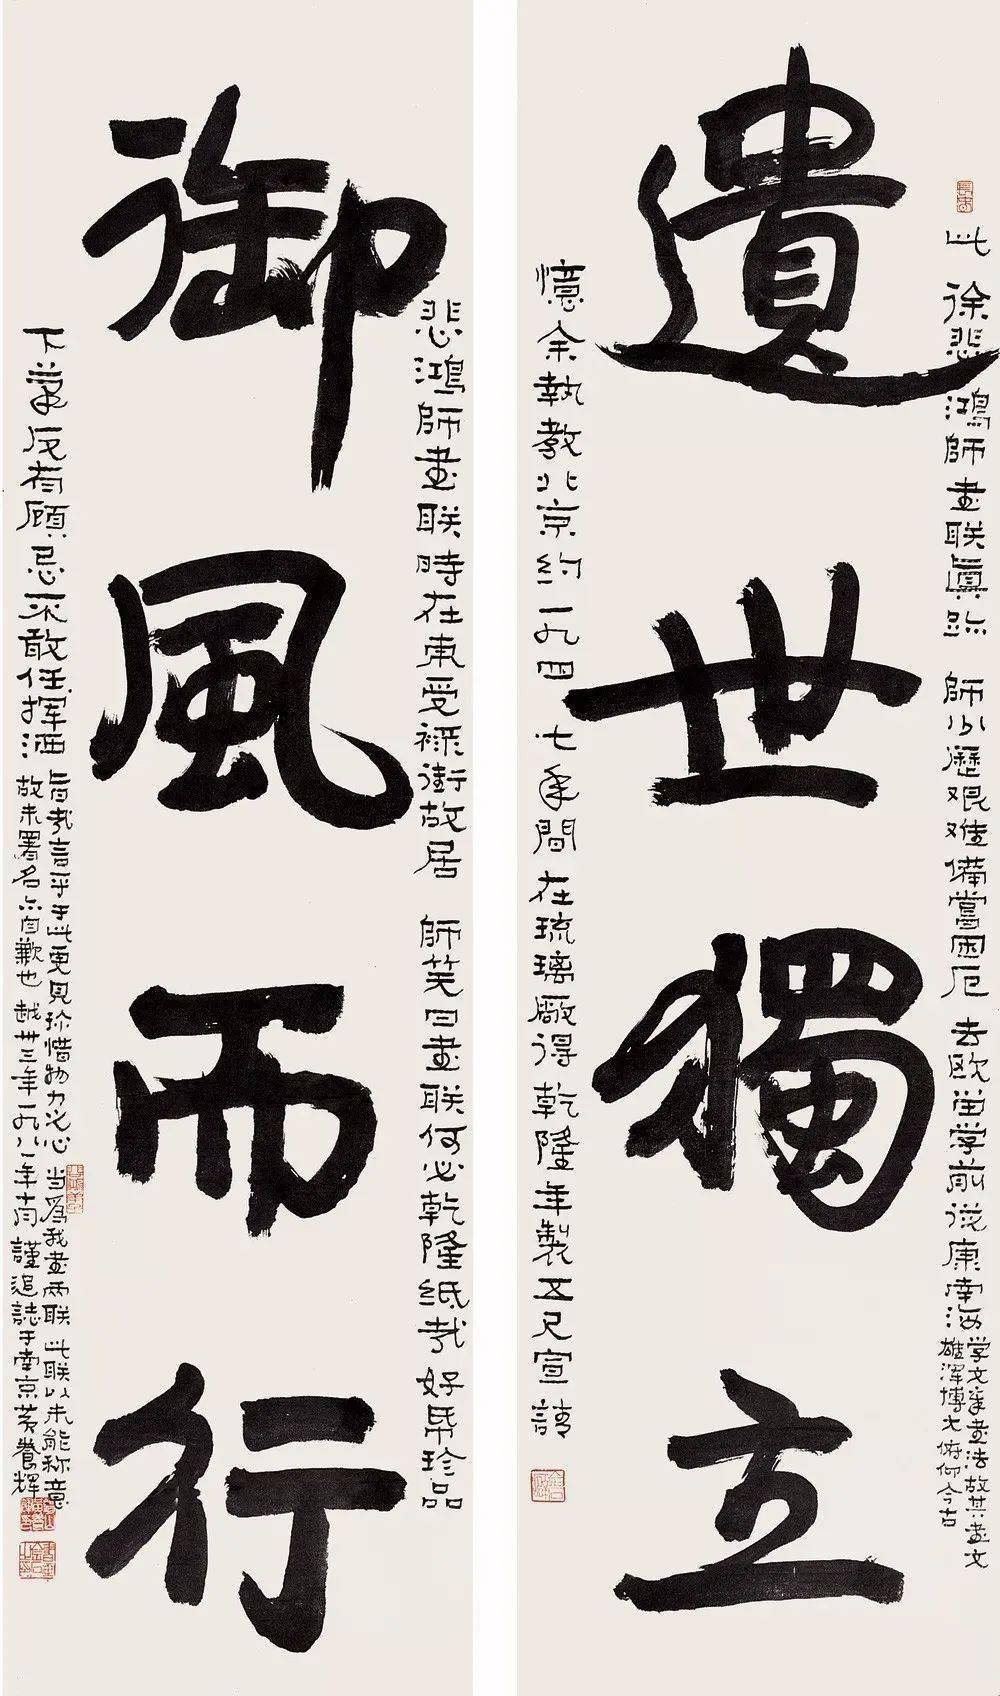 遺世獨立
此徐悲鴻師書联真跡 師少歷艰难備嘗困厄 去欧留学前从康南海
学文章書法故其書文
雄渾博大俯仰今古
憶余執教北京約一九四七年間在琉璃厰得乾隆年製五尺宣請
御風而行
悲鴻師書联時在東受禄街故居 師笑曰書联何必乾隆纸哉 好帋珍品
下筆反有顧忌不敢任揮洒
旨哉言乎于此更見珍惜物力之心 当爲我書兩联 此联以未能称意
故未署名亦自歉也 越卅三年一九八一年十月 謹追誌于南京黄養輝